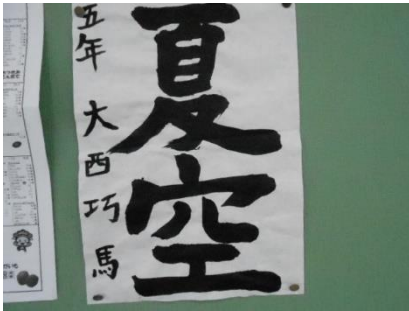 夏空
五年 大西巧馬